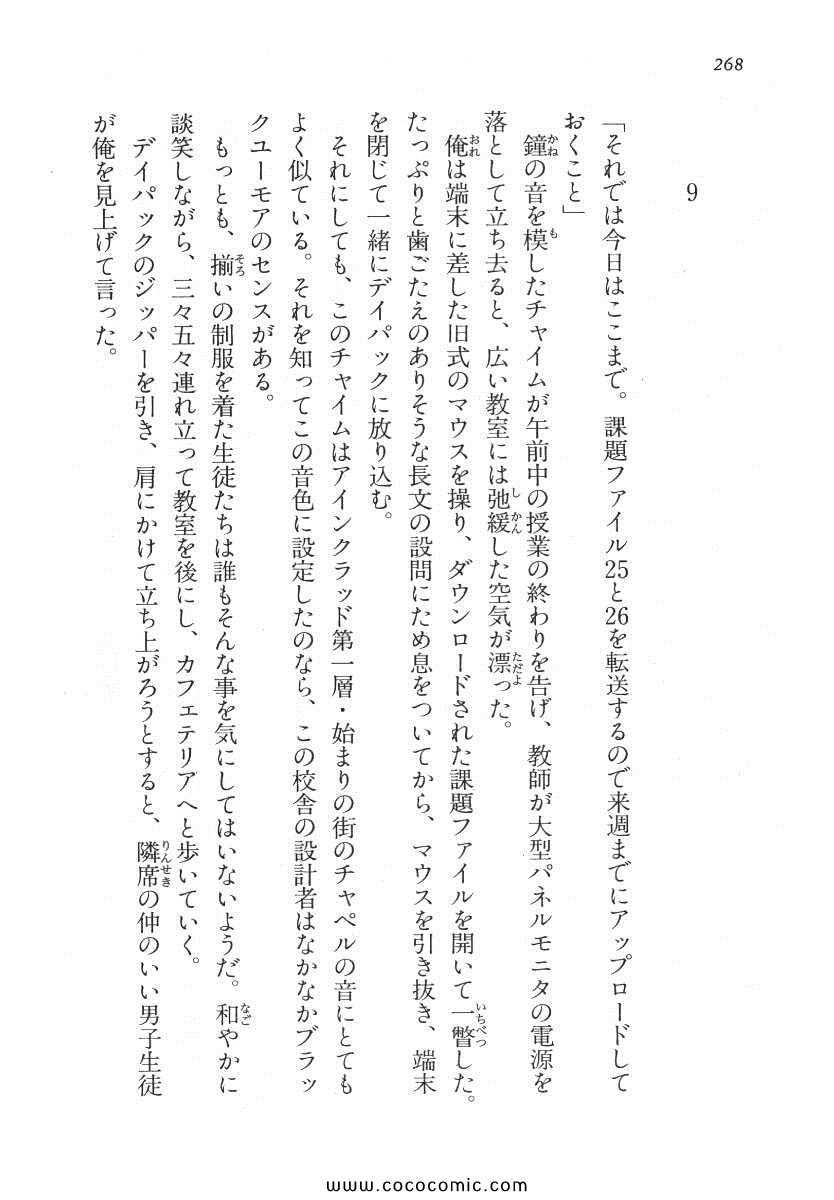 268
9
「それでは今日はここまで。課題ファイル25と26を転送するので来週までにアップロードして
おくこと」
鐘の音を模したチャイムが午前中の授業の終わりを告げ、教師が大型パネルモニタの電源を
落として立ち去ると、広い教室には弛緩した空気が漂った。
俺は端末に差した旧式のマウスを操り、ダウンロードされた課題ファイルを開いて一瞥した。
たっぷりと歯ごたえのありそうな長文の設問にため息をついてから、マウスを引き抜き、端末
を閉じて一緒にデイパックに放り込む。
それにしても、このチャイムはアインクラッド第一層・始まりの街のチャペルの音にとても
よく似ている。それを知ってこの音色に設定したのなら、この校舎の設計者はなかなかブラッ
クユーモアのセンスがある。
もっとも、揃いの制服を着た生徒たちは誰もそんな事を気にしてはいないようだ。和やかに
談笑しながら、三々五々連れ立って教室を後にし、カフェテリアへと歩いていく。
デイパックのジッパーを引き、肩にかけて立ち上がろうとすると、隣席の仲のいい男子生徒
が俺を見上げて言った。
www.cococomic.com